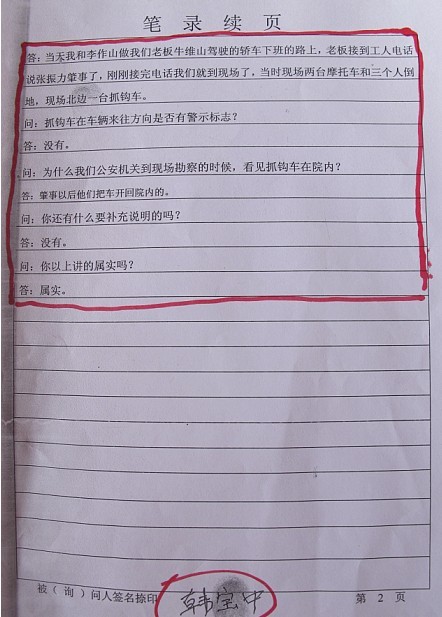 笔录续页
答：当无我和李作山做我们老板牛维山驾驶的轿车下班的路上，老板接到工人电话
说张振力肇事了，刚刚接完电话我们就到现场了，当时现场两台摩托车和三个人倒
地，现场北边一台抓钩车。
问：抓钩车在车辆来往方向是否有警示标志？
答：没有。
问：为什么我们公安机关到现场勘察的时候，看见抓钩车在院内？
答：肇事以后他们把车开回院内的。
问：你还有什么要补充说明的吗？
答：没有。
问：你以上讲的属实吗？
答：属实。
被（询）问人签名捺印 韩宝中 第 2 页